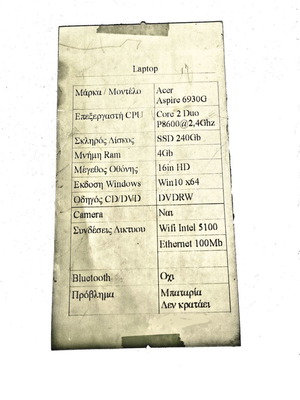 Laptop
Μάρκα / Μοντέλο Acer
Aspire 6930G
Επεξεργαστή CPU Core 2 Duo
P8600@2,4Ghz
Σκληρός Δίσκος SSD 240Gb
Μνήμη Ram 4Gb
Μέγεθος Οθόνης 16in HD
Εκδοση Windows Win10 x64
Οδηγός CD/DVD DVDRW
Camera Ναι
Συνδέσεις Δικτυου Wifi Intel 5100
Ethernet 100Mb
Bluetooth Οχι
Πρόβλημα Μπαταρία
Δεν κρατάει